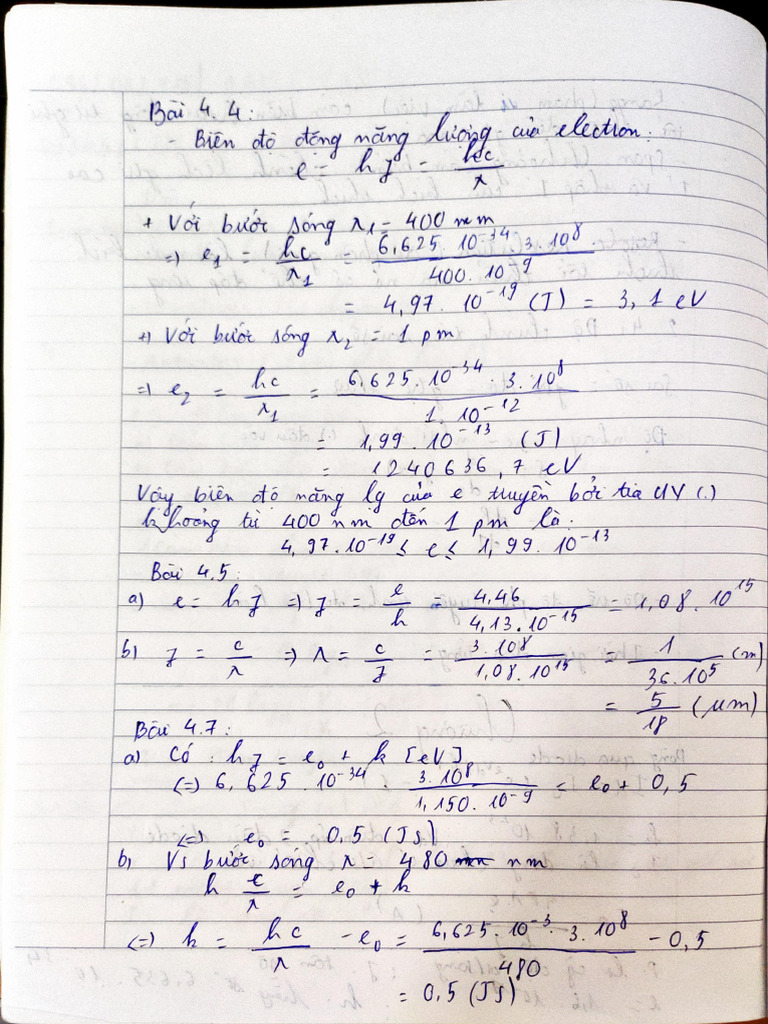 Bài 4.4:
- Biên độ động năng lượng của electron:
e = hf = hc/λ
+ Với bước sóng λ1 = 400 nm
=> e1 = hc/λ1 = 6,625.10^-34.3.10^8/400.10^-9
= 4,97.10^-19 (J) = 3,1 eV
+) Với bước sóng λ2 = 1 pm
=> e2 = hc/λ1 = 6,625.10^-34.3.10^8/1.10^-12
= 1,99.10^-13 (J)
= 1240636,7 eV
Vậy biên độ năng lg của e truyền bởi tia UV (.)
khoảng từ 400 nm đến 1 pm là:
4,97.10^-19 ≤ e ≤ 1,99.10^-13
Bài 4.5:
a) e = hf => f = e/h = 4,46/4,13.10^-15 = 1,08.10^15
b) f = c/λ => λ = c/f = 3.10^8/1,08.10^15 = 1/36.10^5 (m)
= 5/18 (μm)
Bài 4.7:
a) Có: hf = e0 + k [eV]
(=) 6,625.10^-34.3.10^8/1,150.10^-9 = e0 + 0,5
(=) e0 = 0,5 (Js)
b) Vs bước sóng λ = 480 nm
h c/λ = e0 + k
(=) k = hc/λ - e0 = 6,625.10^-3.3.10^8/480 - 0,5
= 0,5 (Js)